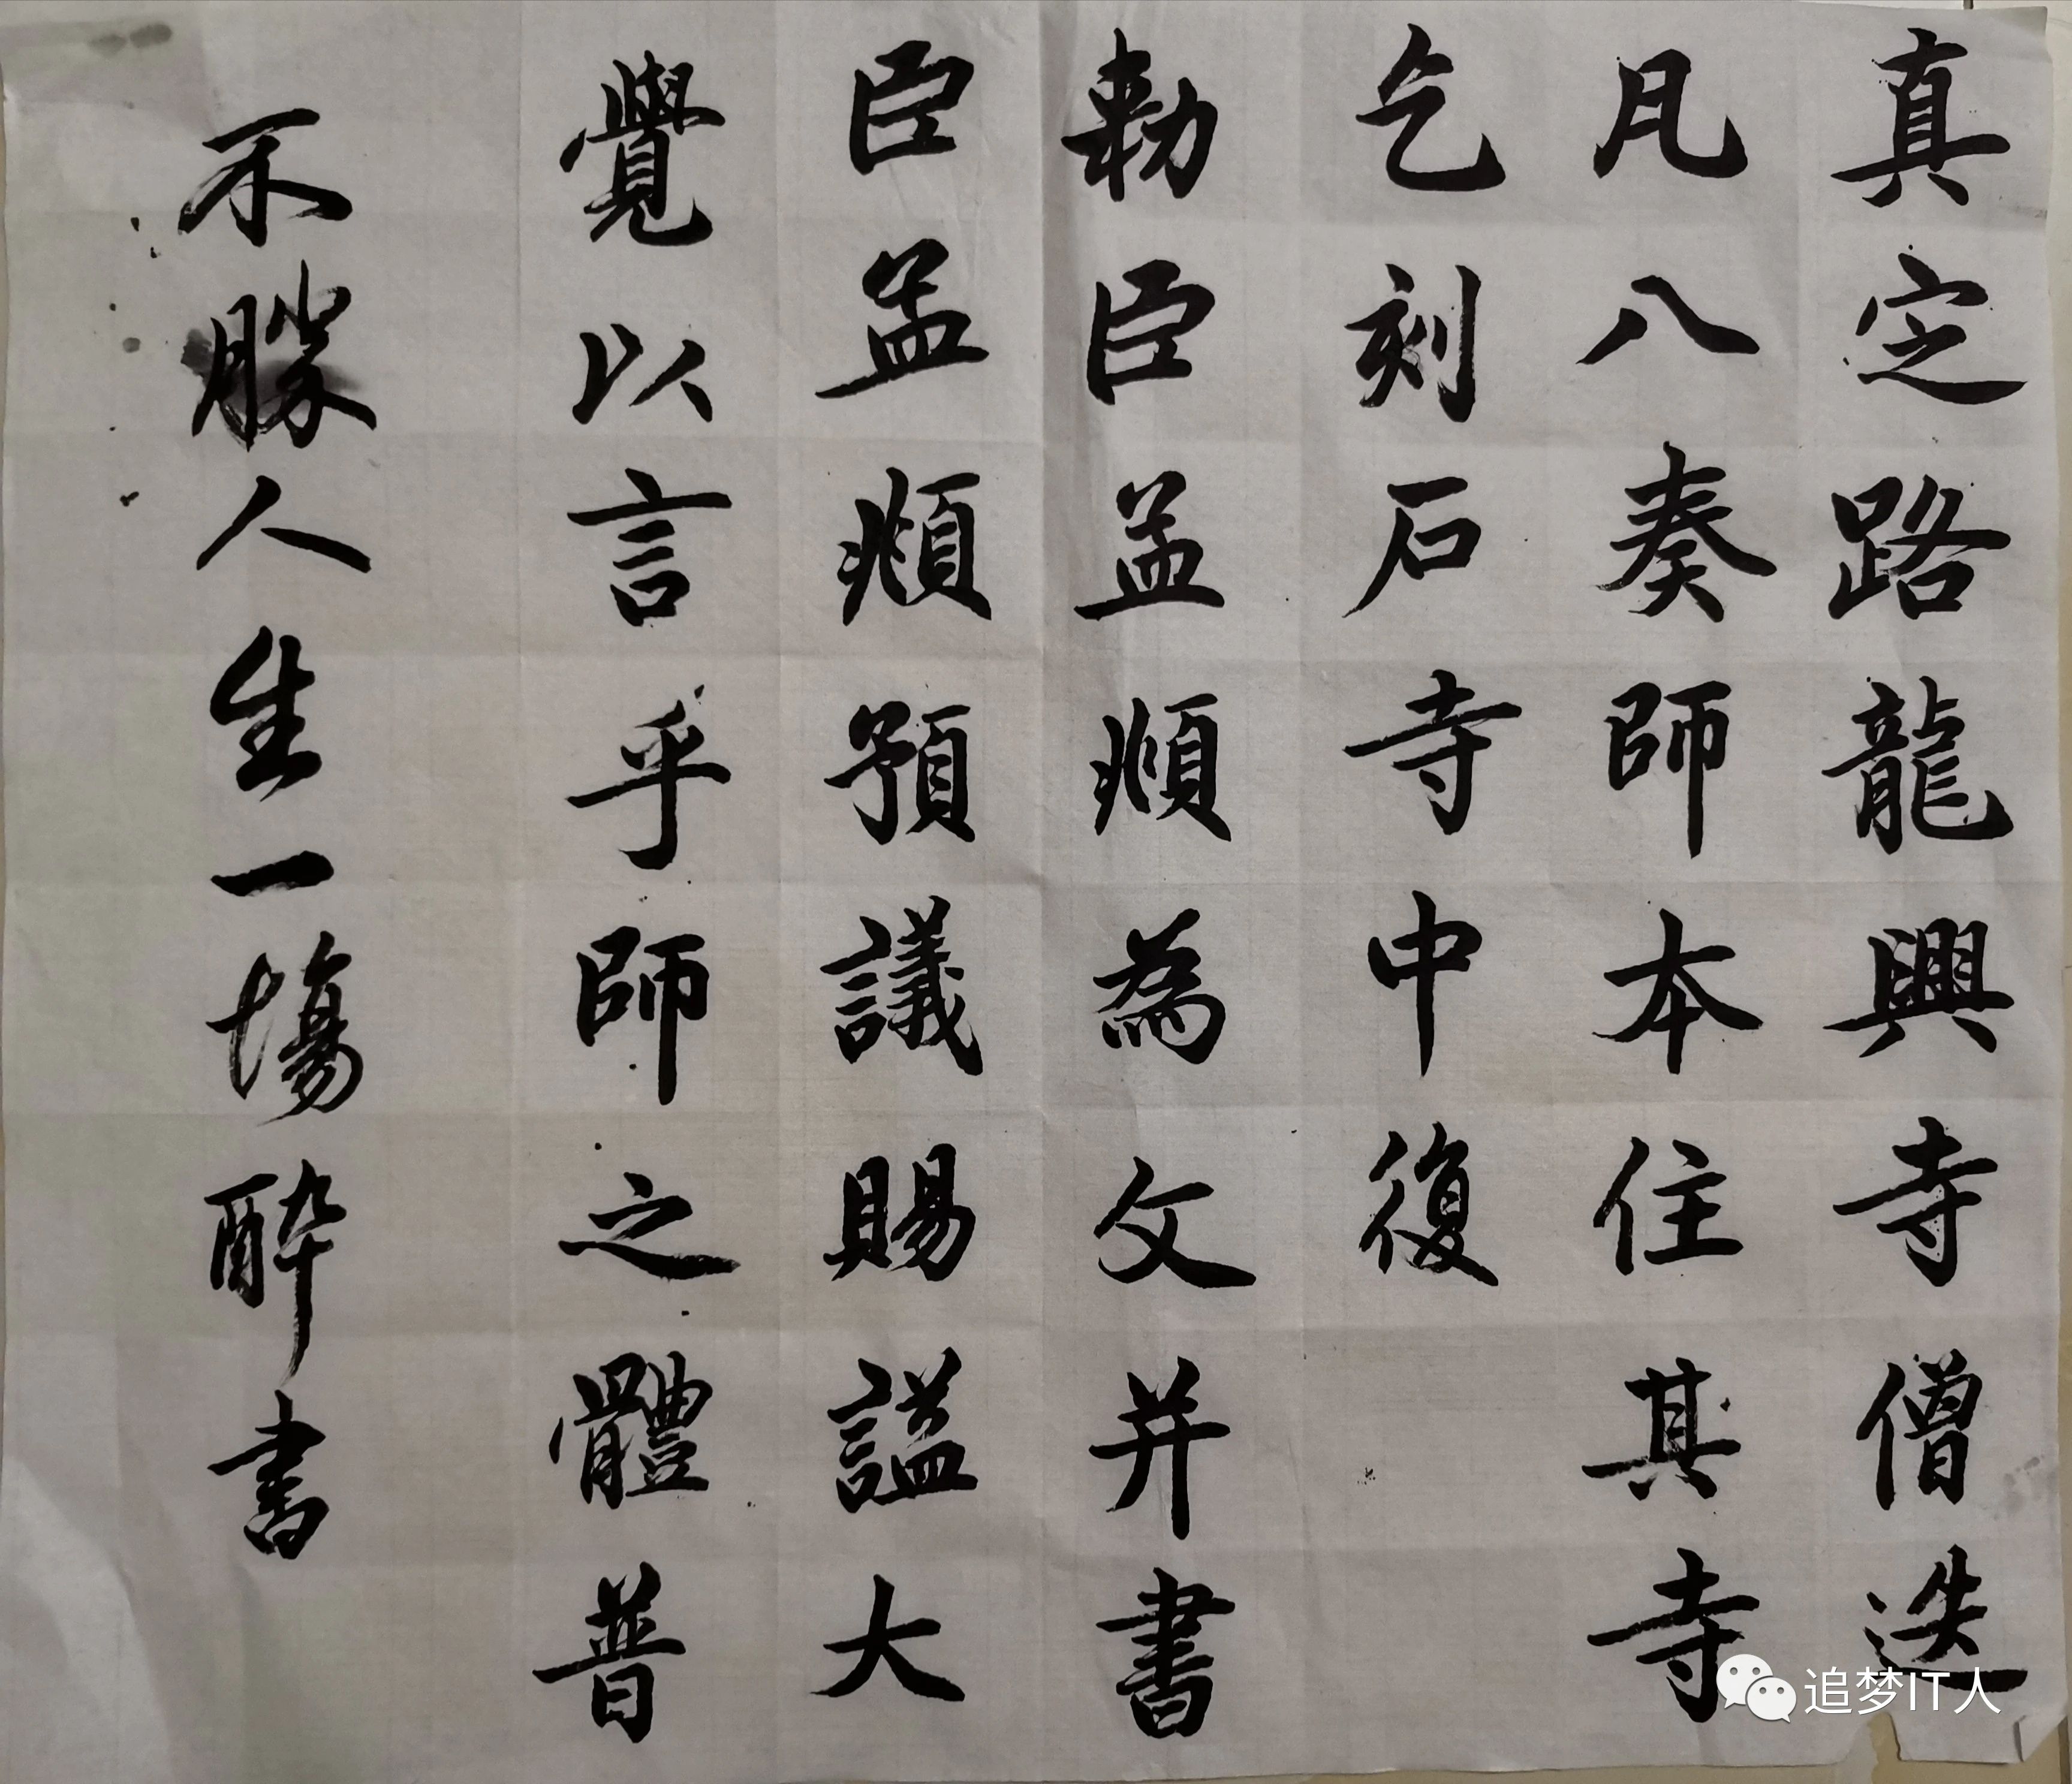 真定路龍興寺僧迭
凡八奏師本住其寺
乞刻石寺中復
勅臣孟頫為文并書
臣孟頫預議賜諡大
覺以言乎師之體普
不勝人生一場醉書
追梦IT人